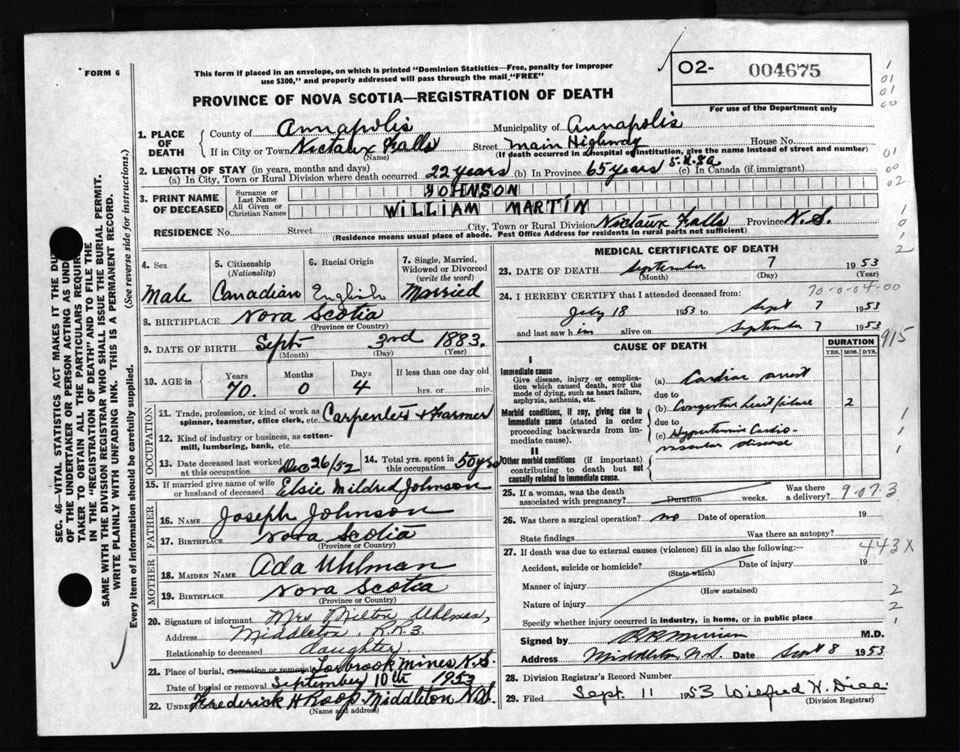 FORM 6
This form if placed in an envelope, on which is printed "Dominion Statistics—Free, penalty for improper
use $300," and properly addressed will pass through the mail "FREE"
02- 004675
For use of the Department only
PROVINCE OF NOVA SCOTIA—REGISTRATION OF DEATH
1. PLACE OF DEATH
County of Annapolis Municipality of Annapolis
If in City or Town Nictaux Falls Street Main Highway House No.
(Name) (If death occurred in a hospital or institution, give the name instead of street and number)
2. LENGTH OF STAY (in years, months and days)
(a) In City, Town or Rural Division where death occurred 22 years (b) In Province 65 years (c) In Canada (if immigrant)
3. PRINT NAME OF DECEASED
Surname or Last Name JOHNSON
All Given or Christian Names WILLIAM MARTIN
RESIDENCE No. Street City, Town or Rural Division Nictaux Falls Province N.S.
(Residence means usual place of abode. Post Office Address for residents in rural parts not sufficient)
4. Sex Male
5. Citizenship (Nationality) Canadian
6. Racial Origin English
7. Single, Married, Widowed or Divorced (write the word) Married
8. BIRTHPLACE Nova Scotia
(Province or Country)
9. DATE OF BIRTH Sept 3rd 1883.
(Month) (Day) (Year)
10. AGE in Years 70. Months 0 Days 4 If less than one day old hrs. or min.
OCCUPATION
11. Trade, profession, or kind of work as spinner, teamster, office clerk, etc. Carpenter & Farmer
12. Kind of industry or business, as cotton-mill, lumbering, bank, etc.
13. Date deceased last worked at this occupation Dec 26/52
14. Total yrs. spent in this occupation 50 yrs
15. If married give name of wife or husband of deceased Elsie Mildred Johnson
FATHER
16. NAME Joseph Johnson
17. BIRTHPLACE Nova Scotia
(Province or Country)
MOTHER
18. MAIDEN NAME Ada Uhlman
19. BIRTHPLACE Nova Scotia
(Province or Country)
20. Signature of informant Mrs Milton Uhlman,
Address Middleton, R.R.3.
Relationship to deceased daughter.
21. Place of burial, cremation or removal Torbrook Mines N.S.
Date of burial or removal September 10th 1953
22. UNDERTAKER Frederick H Roop Middleton N.S.
(Name and address)
MEDICAL CERTIFICATE OF DEATH
23. DATE OF DEATH September 7 1953
(Month) (Day) (Year)
70-0-04-00
24. I HEREBY CERTIFY that I attended deceased from:
July 18 1953 to Sept 7 1953
and last saw him alive on September 7 1953
915
CAUSE OF DEATH
DURATION
YRS. MOS. DYS.
I
Immediate cause
Give disease, injury or complication which caused death, NOT the mode of dying, such as heart failure, asphyxia, asthenia, etc.
(a) Cardiac arrest
due to
Morbid conditions, if any, giving rise to immediate cause (stated in order proceeding backwards from immediate cause).
(b) Congestive heart failure 2
due to
(c) Hypertensive Cardio-
vascular disease
II
Other morbid conditions (if important) contributing to death but not causally related to immediate cause.
25. If a woman, was the death associated with pregnancy? Duration weeks. Was there a delivery?
9-073
26. Was there a surgical operation? no Date of operation 19
State findings Was there an autopsy?
443X
27. If death was due to external causes (violence) fill in also the following:—
Accident, suicide or homicide? Date of injury 19
(State which)
Manner of injury
(How sustained)
Nature of injury
Specify whether injury occurred in industry, in home, or in public place
Signed by M.D.
Address Middleton, N.S. Date Sept 8 1953
28. Division Registrar's Record Number
29. Filed Sept. 11 1953 Wilfred H.
(Division Registrar)
SEC. 46—VITAL STATISTICS ACT MAKES IT THE
OF THE UNDERTAKER OR PERSON ACTING AS
TAKER TO OBTAIN ALL THE PARTICULARS
IN THE "REGISTRATION OF DEATH" AND TO FILE THE
SAME WITH THE DIVISION REGISTRAR WHO SHALL ISSUE THE BURIAL PERMIT.
WRITE PLAINLY WITH UNFADING INK. THIS IS A PERMANENT RECORD.
Every item of information should be carefully supplied. (See reverse side for instructions.)